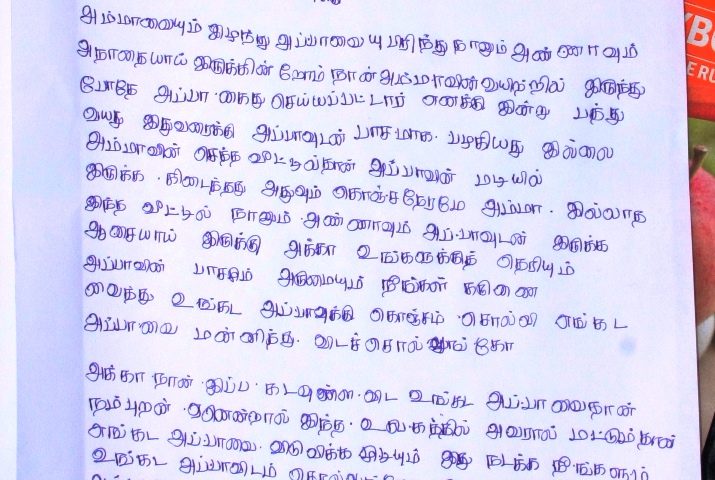 அம்மாவையும் இழந்து அப்பாவையு பிரிந்து நானும் அண்ணாவும்
அநாதையாய் இருக்கின்றோம் நான் அம்மாவின் வயிற்றில் இருந்து
போதே அப்பா கைது செய்யப்பட்டார் எனக்கு இன்று பத்து
வயது இதுவரைக்கு அப்பாவுடன் பாசமாக பழகியது இல்லை
அம்மாவின் செத்த வீட்டில்தான் அப்பாவின் மடியில்
இருக்க கிடைத்தது அதுவும் கொஞ்சநேரமே அம்மா இல்லாத
இந்த வீட்டில் நானும் அண்ணாவும் அப்பாவுடன் இருக்க
ஆசையாய் இருக்கு அக்கா உங்களுக்குத் தெரியும்
அப்பாவின் பாசமும் அருமையும் நீங்கள் கருணை
வைத்து உங்கட அப்பாவுக்கு கொஞ்சம் சொல்லி எங்கட
அப்பாவை மன்னித்து விடச்சொல்
அக்கா நான் இப்ப கடவுள விட உங்கட அப்பாவைதான்
நம்புறன் ஏனென்றால் இந்த உலகத்தில் அவரால் மட்டும்தான்
எங்கட அப்பாவை விடுவிக்க முடியும் இது நடக்க நீங்களும்
உங்கட அப்பாவிடம்
KB
E RU